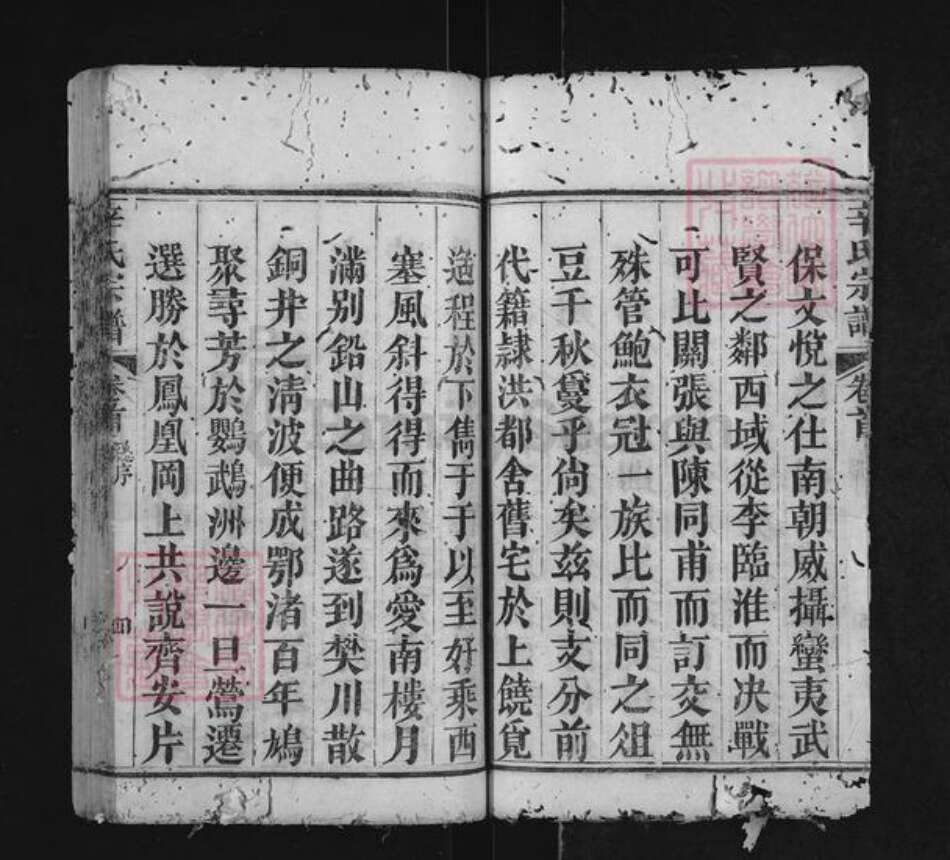 辛氏宗譜 卷首
保文悅之仕南朝威攝蠻夷武
賢之鄰西域從李臨淮而決戰
可比關張與陳同甫而訂交無
殊管鮑衣冠一族比而同之俎
豆千秋敻乎尙矣茲則支分前
代籍隷洪都舍舊宅於上饒覓
程於下雋于于以至好乘西
塞風斜得得而來爲愛南樓月
滿別鉛山之曲路遂到樊川散
銅井之淸波便成鄂渚百年鳩
聚尋芳於鸚鵡洲邊一旦鶯遷
選勝於鳳凰岡上共說齊安片
辛氏宗譜 卷首 序 四